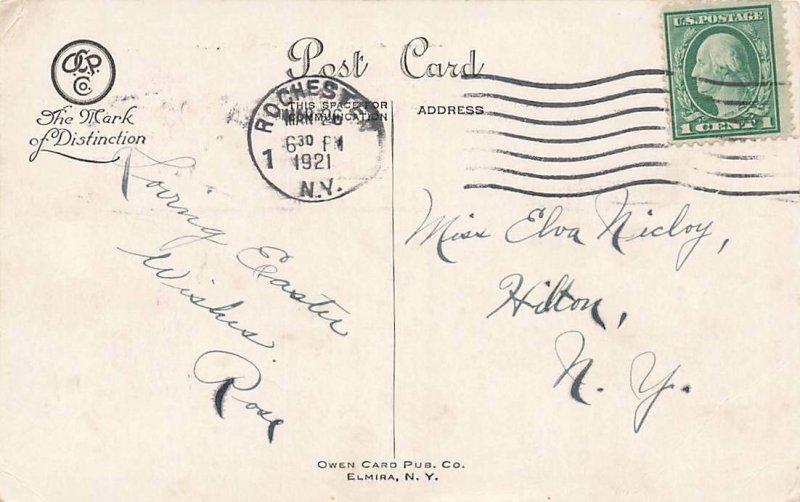 O.C.P. Co.
The Mark
of Distinction
Post Card
THIS SPACE FOR
COMMUNICATION
ADDRESS
ROCHESTER
6 30 PM
1
1921
N.Y.
U.S. POSTAGE
1 CENT 1
Loving Easter
Wishes.
Rose
Miss Elva Nicloy,
Hilton,
N. Y.
OWEN CARD PUB. CO.
ELMIRA, N. Y.